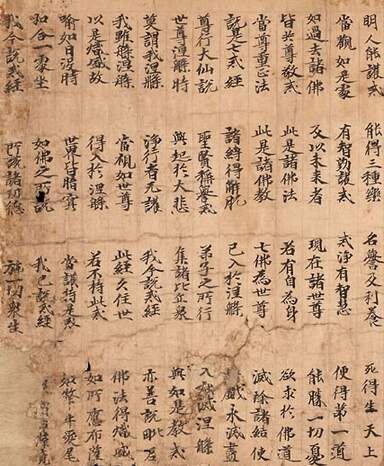 明人能護戒 能得三種樂 名譽及利養 死得生天上
當觀如是處 有智勤護戒 戒淨有智慧 便得第一道
如過去諸佛 及以未來者 現在諸世尊 能勝一切憂
皆共尊敬戒 此是諸佛法 若有自為身 欲求於佛道
當尊重正法 此是諸佛教 七佛為世尊 滅除諸結使
說是七戒經 諸縛得解脫 已入於涅槃 戲永滅盡
尊行大仙說 聖賢稱譽戒 弟子之所行 入滅涅槃
世尊涅槃時 興起於大悲 集諸比丘眾 與如是教戒
莫謂我涅槃 淨行者无護 我今說戒經 亦善說毗尼
我雖般涅槃 當觀如世尊 此經久住世 佛法得熾盛
以是熾盛故 得入於涅槃 若不持此戒 如所應布薩
喻如日沒時 世界皆闇冥 當護持是戒 如犛牛愛尾
和合一處坐 如佛之所說 我已說戒經
我今說戒經 所說諸功德 施一切眾生